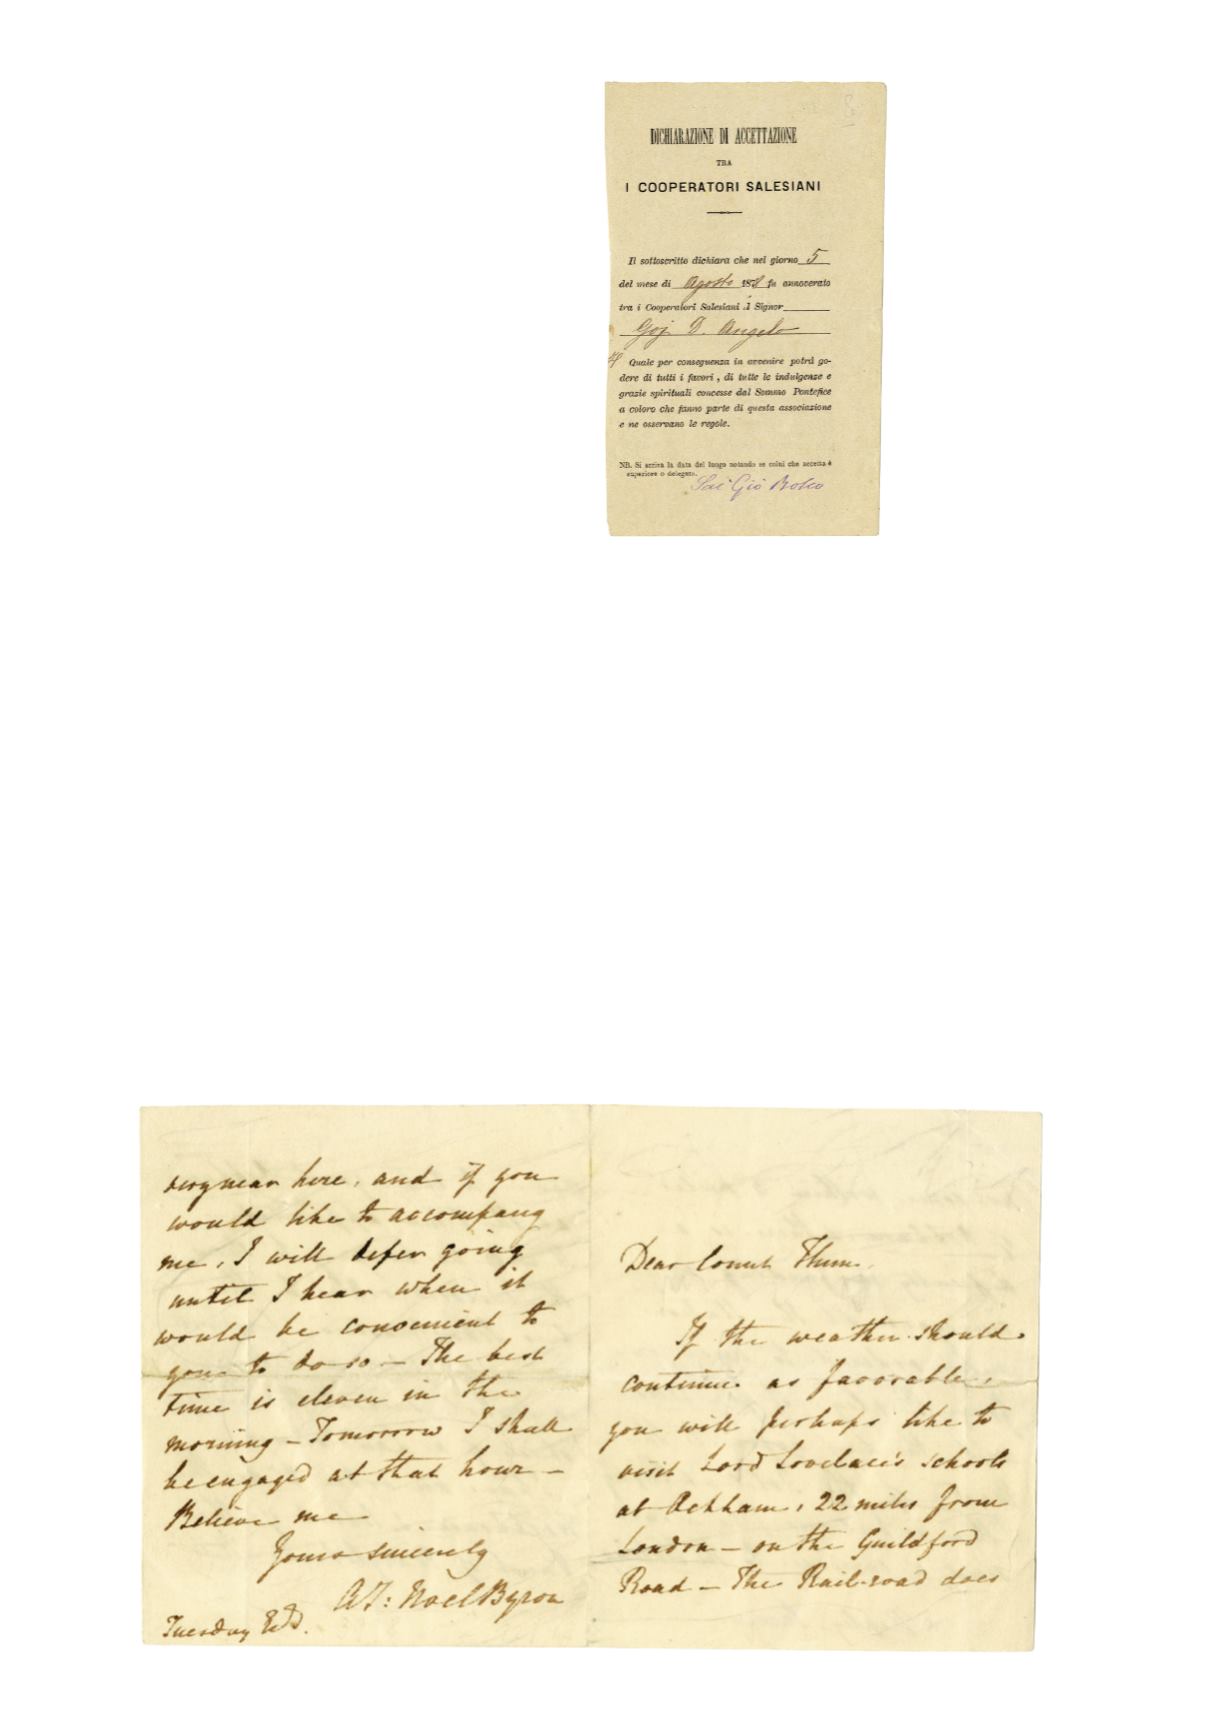 DICHIARAZIONE DI ACCETTAZIONE
TRA
I COOPERATORI SALESIANI
Il sottoscritto dichiara che nel giorno 5
del mese di Agosto 1878 fu annoverato
tra i Cooperatori Salesiani il Signor
Goj D. Angelo
Quale per conseguenza in avvenire potrà go-
dere di tutti i favori, di tutte le indulgenze e
grazie spirituali concesse dal Sommo Pontefice
a coloro che fanno parte di questa associazione
e ne osservano le regole.
NB. Si scriva la data del luogo notando se colui che accetta è
superiore o delegato.
Sac Gio Bosco
very near here, and if you
would like to accompany
me, I will defer going
until I hear when it
would be convenient to
you to do so — The best
time is eleven in the
morning — Tomorrow I shall
be engaged at that hour —
Believe me
Yours sincerely
A I: Noel Byron
Tuesday
Dear Count
If the weather should
continue as favorable,
you will perhaps like to
visit Lord Lovelace's schools
at Ockham, 22 miles from
London — on the Guildford
Road — The Rail-road does